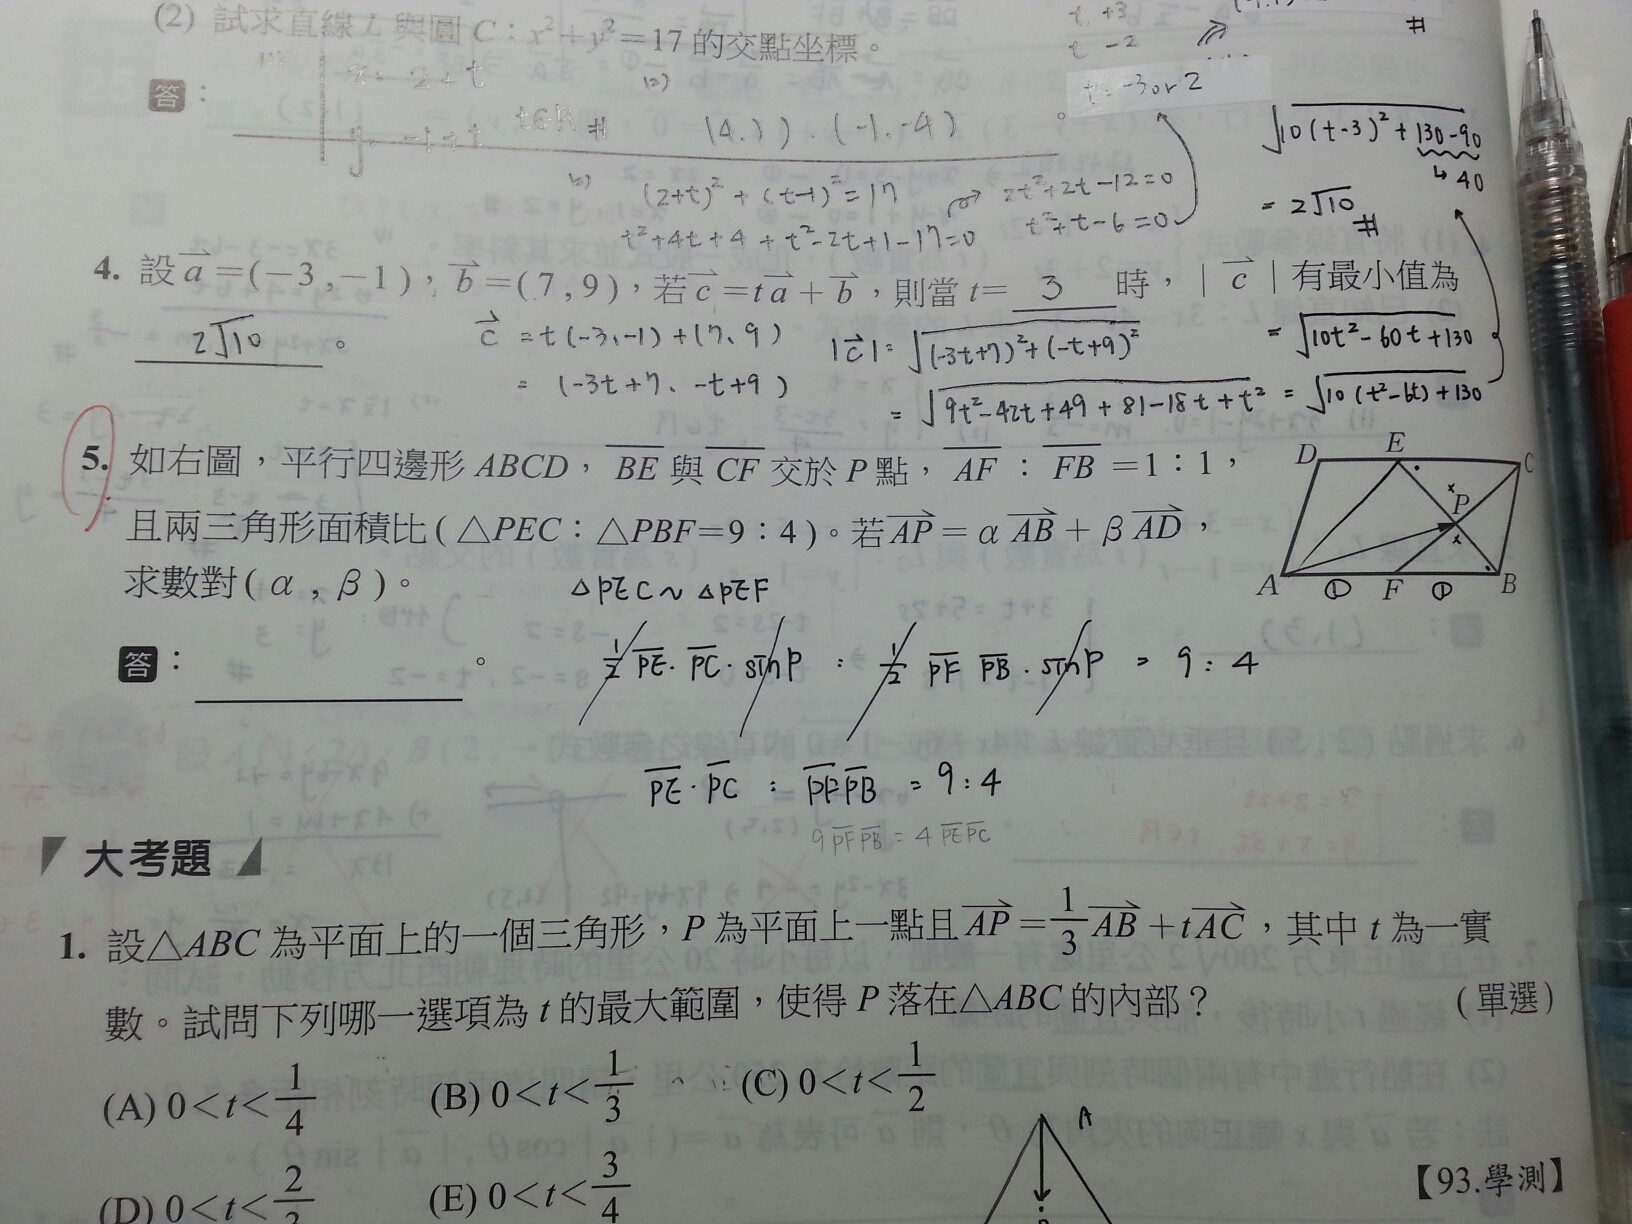 (2) 試求直線 L 與圓 C：x²＋y²＝17 的交點坐標。
答：
x = 2+t
y = -1+t
t∈R #
(2)
(4,1)、(-1,-4)
(2+t)²+(t-1)²=17
t²+4t+4+t²-2t+1-17=0
2t²+2t-12=0
t²+t-6=0
t=-3 or 2
t +3
t -2
#
√10(t-3)²+130-90
↳ 40
= 2√10 #
4. 設 a＝(－3 , －1)，b＝(7 , 9)，若 c＝ta＋b，則當 t＝ 3 時，| c | 有最小值為
2√10 。
c = t(-3,-1)+(7、9)
= (-3t+7、-t+9)
|c| = √(-3t+7)²+(-t+9)²
= √9t²-42t+49+81-18t+t²
= √10t²-60t+130
= √10(t²-6t)+130
5. 如右圖，平行四邊形 ABCD，BE 與 CF 交於 P 點，AF：FB＝1：1，
且兩三角形面積比 (△PEC：△PBF＝9：4)。若 AP＝α AB＋β AD，
求數對 (α , β)。
D E C
P
A ① F ① B
△PEC ~ △PEF
答： 。
1/2 PE · PC · sinP : 1/2 PF PB · sinP = 9 : 4
PE · PC : PF PB = 9 : 4
9 PF PB = 4 PE PC
大考題
1. 設△ABC 為平面上的一個三角形，P 為平面上一點且 AP＝1/3 AB＋tAC，其中 t 為一實
數。試問下列哪一選項為 t 的最大範圍，使得 P 落在△ABC 的內部？ (單選)
(A) 0＜t＜1/4 (B) 0＜t＜1/3 (C) 0＜t＜1/2
A
(D) 0＜t＜2/3 (E) 0＜t＜3/4
【93.學測】